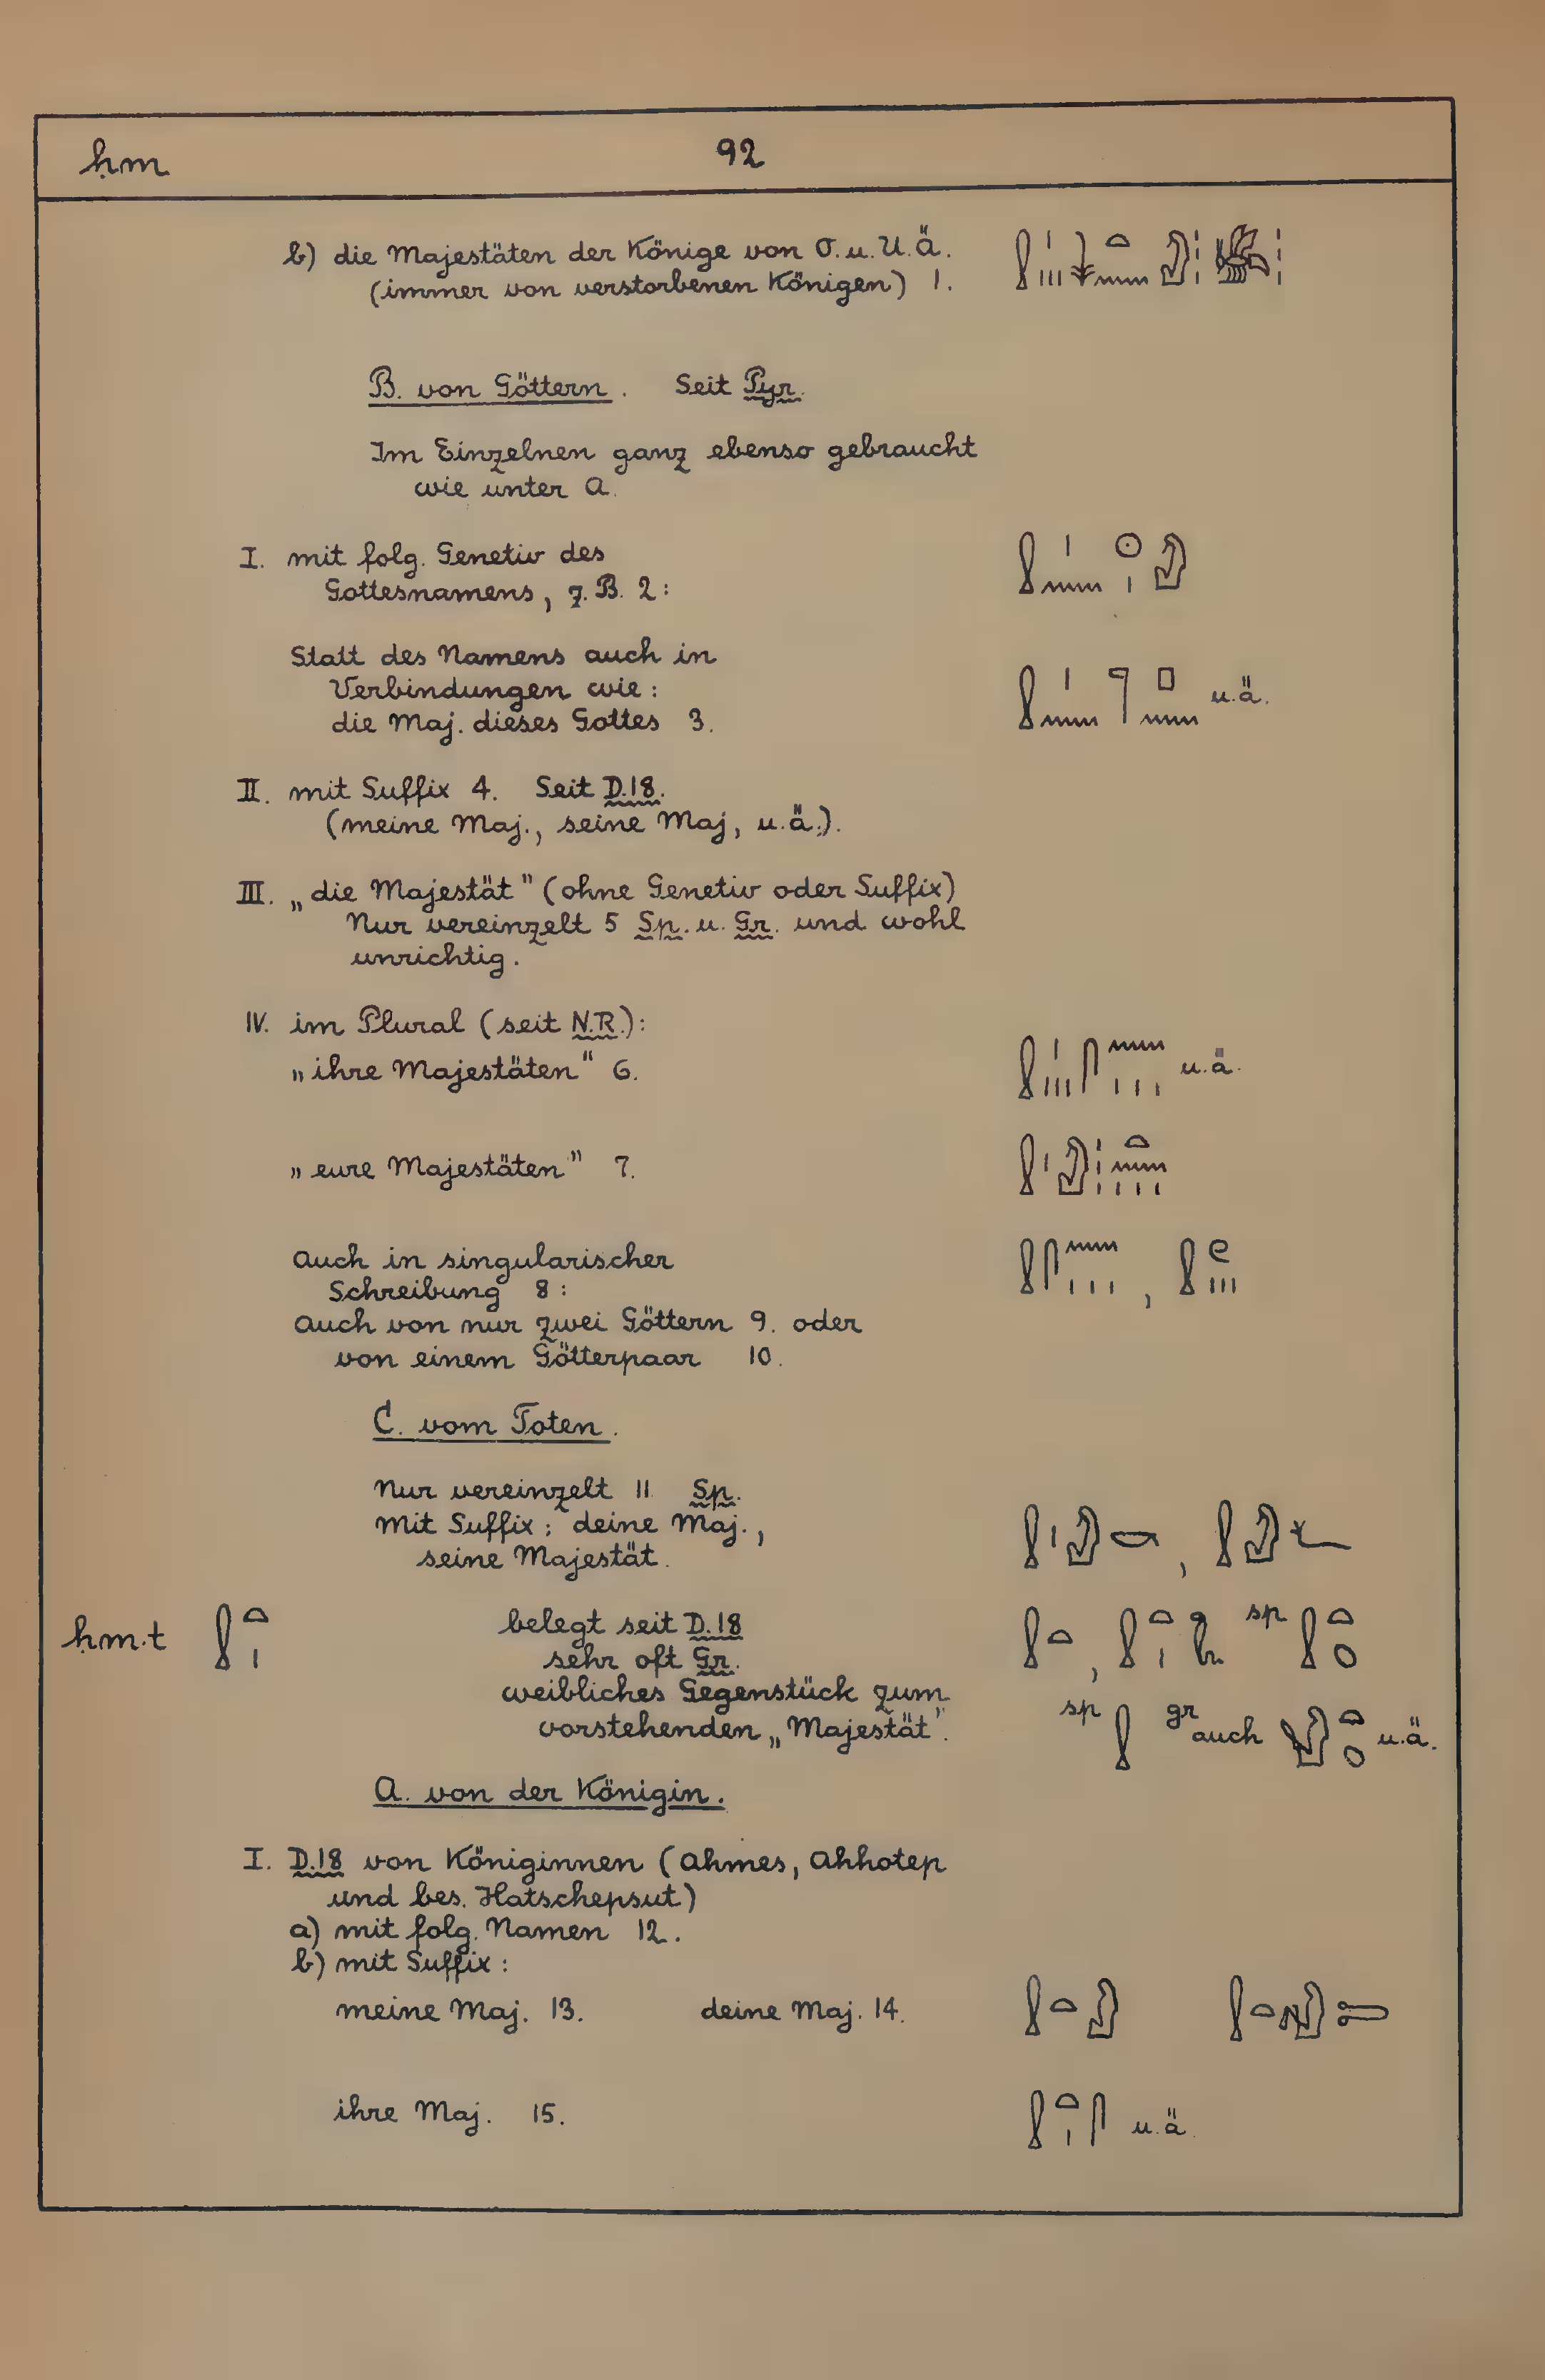 ḥm 92
b) die Majestäten der Könige von O. u. U. Ä.
(immer von verstorbenen Königen) 1.
B. von Göttern. Seit Pyr.
Im Einzelnen ganz ebenso gebraucht
wie unter A.
I. mit folg. Genetiv des
Gottesnamens, z. B. 2:
Statt des Namens auch in
Verbindungen wie:
die Maj. dieses Gottes 3. u. ä.
II. mit Suffix 4. Seit D. 18.
(meine Maj., seine Maj, u. ä.).
III. „die Majestät" (ohne Genetiv oder Suffix)
Nur vereinzelt 5 Sp. u. Gr. und wohl
unrichtig.
IV. im Plural (seit N.R.):
„ihre Majestäten" 6. u. ä.
„eure Majestäten" 7.
Auch in singularischer
Schreibung 8: ,
Auch von nur zwei Göttern 9. oder
von einem Götterpaar 10.
C. vom Toten.
Nur vereinzelt 11 Sp.
Mit Suffix: deine Maj.,
seine Majestät.
ḥm.t belegt seit D. 18 sp
sehr oft Gr.
weibliches Gegenstück zum
vorstehenden „Majestät". sp gr auch u. ä.
A. von der Königin.
I. D. 18 von Königinnen (Ahmes, Ahhotep
und bes. Hatschepsut)
a) mit folg. Namen 12.
b) mit Suffix:
meine Maj. 13. deine Maj. 14.
ihre Maj. 15. u. ä.